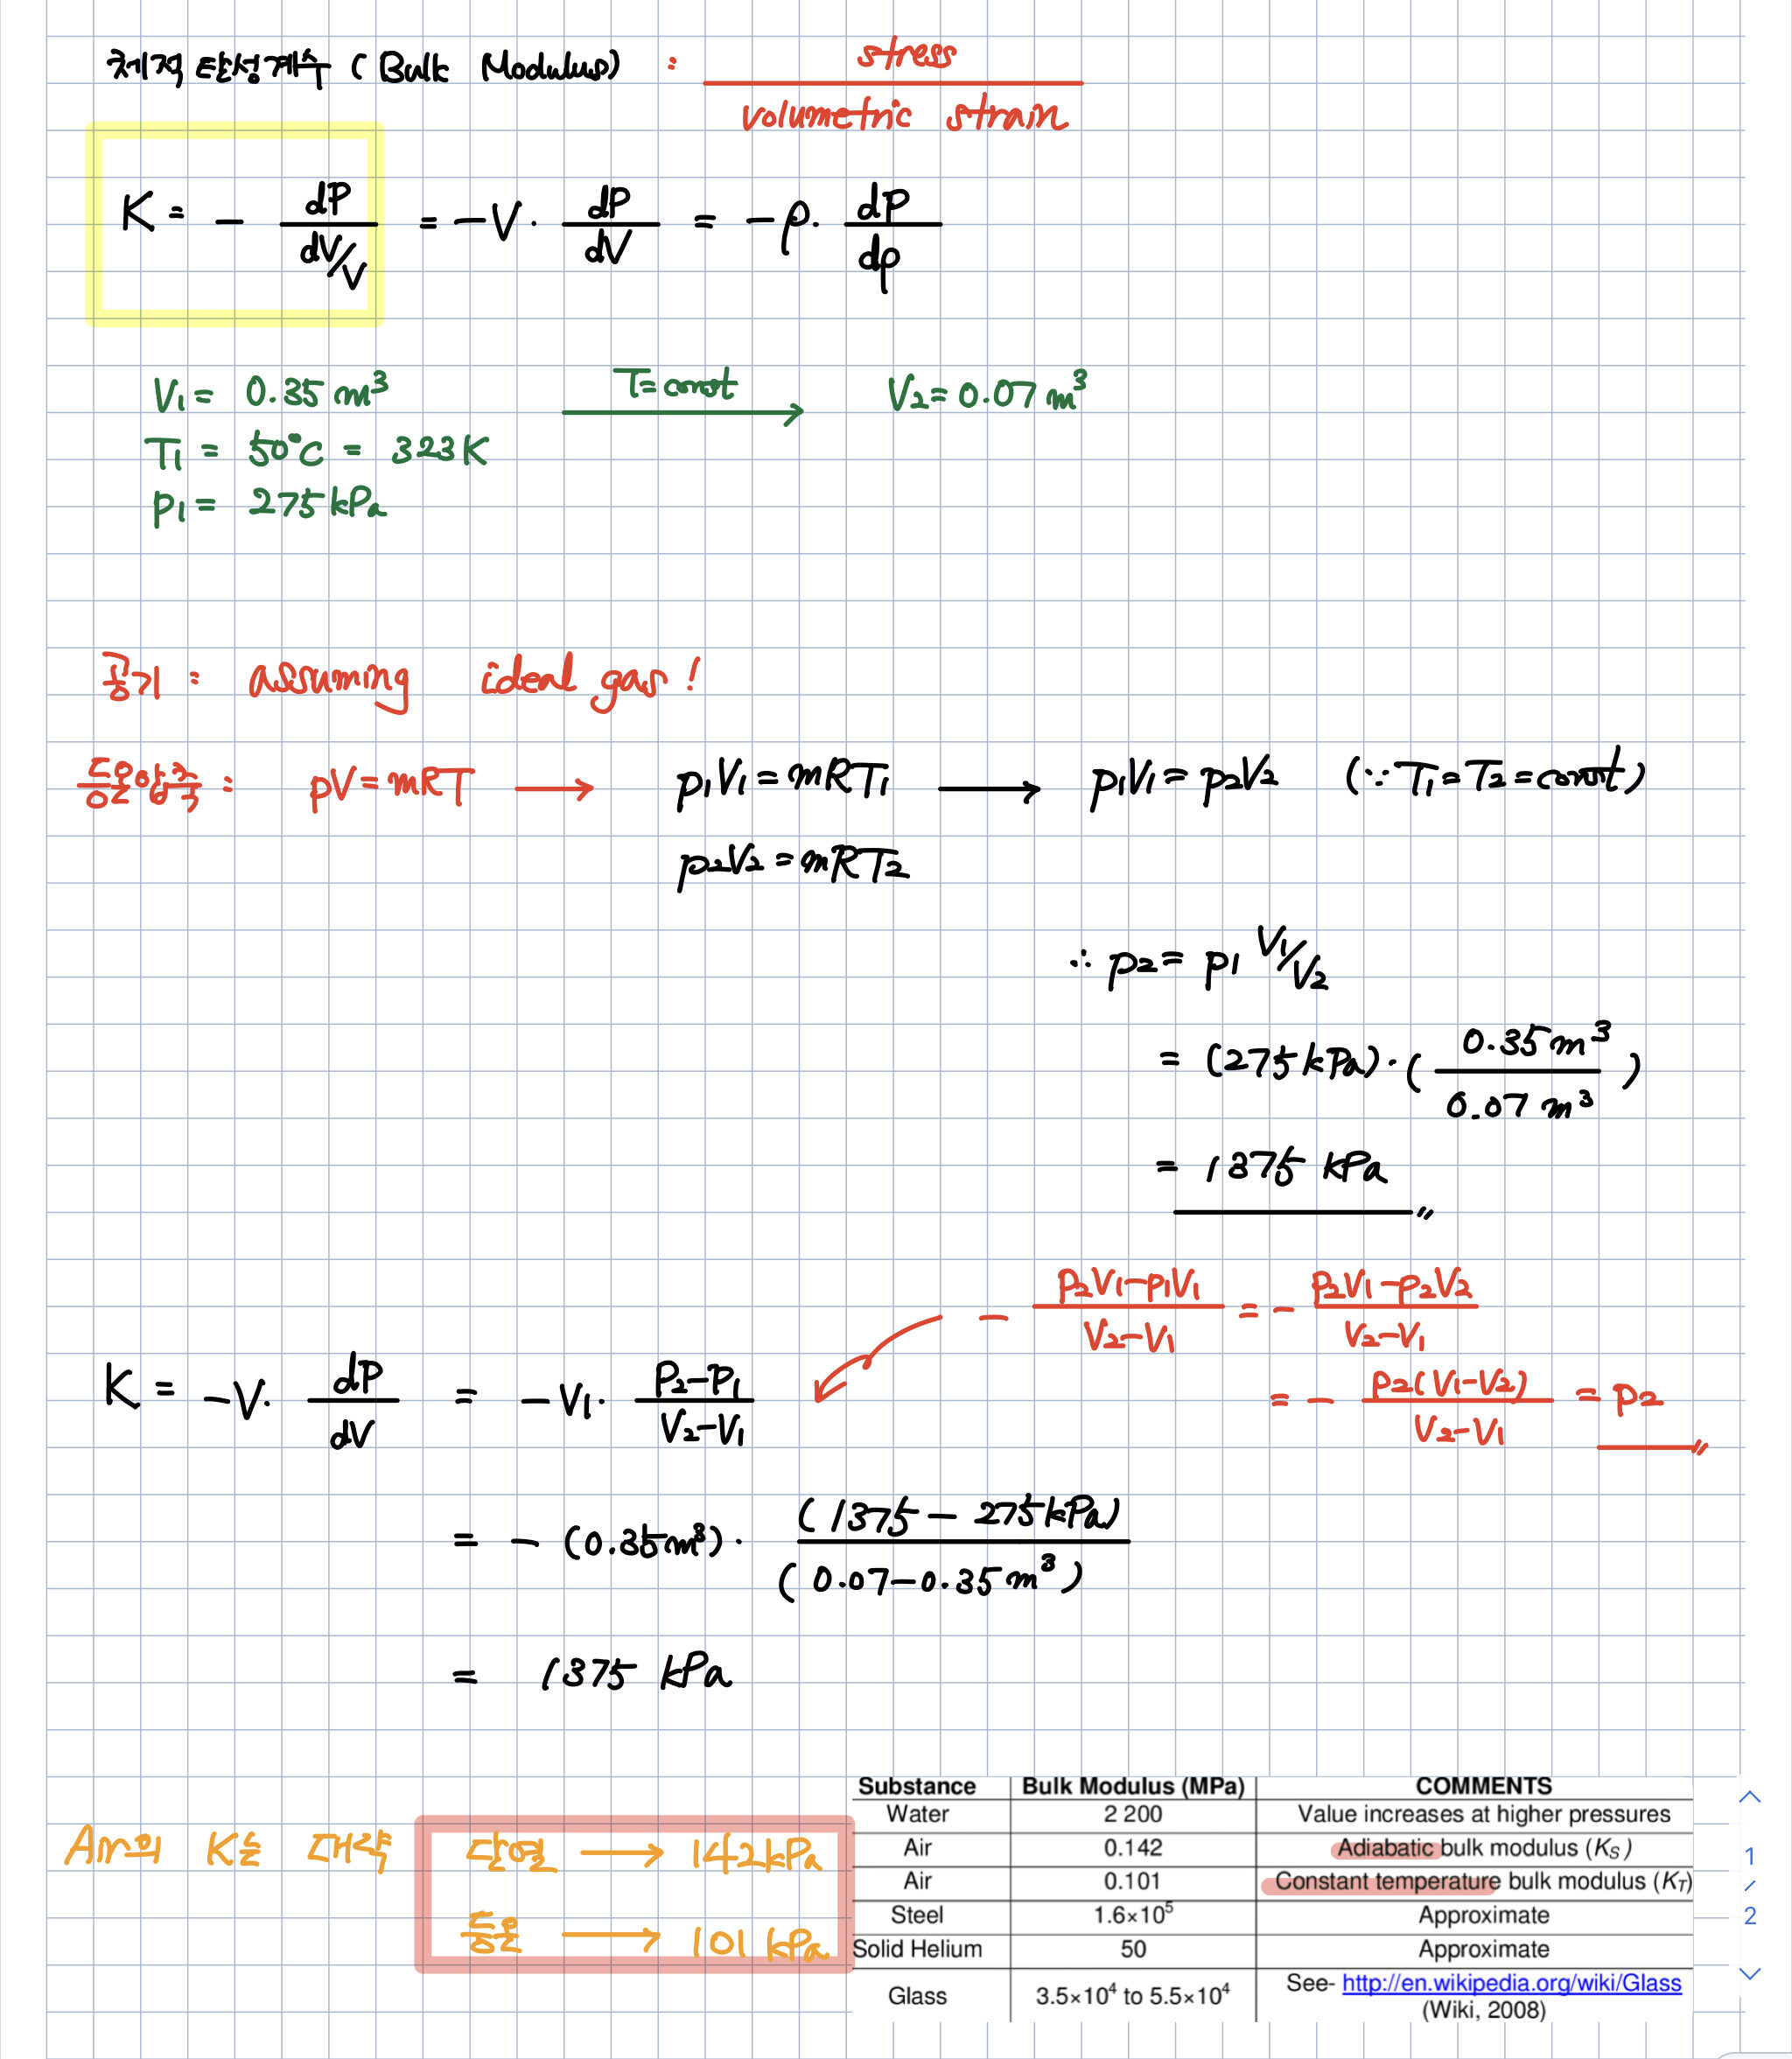 체적탄성계수 (Bulk Modulus) : stress / volumetric strain
K = - dP / (dV/V) = -V · dP/dV = -ρ · dP/dρ
V₁ = 0.35 m³ T=const V₂ = 0.07 m³
T₁ = 50°C = 323K
p₁ = 275 kPa
공기 : assuming ideal gas!
등온압축 : pV = mRT → p₁V₁ = mRT₁ → p₁V₁ = p₂V₂ (∵ T₁ = T₂ = const)
p₂V₂ = mRT₂
∴ p₂ = p₁ V₁/V₂
= (275 kPa) · (0.35 m³ / 0.07 m³)
= 1375 kPa
- (p₂V₁ - p₁V₁) / (V₂ - V₁) = - (p₂V₁ - p₂V₂) / (V₂ - V₁)
= - p₂(V₁ - V₂) / (V₂ - V₁) = p₂
K = -V · dP/dV = -V₁ · (P₂ - P₁) / (V₂ - V₁)
= - (0.35 m³) · (1375 - 275 kPa) / (0.07 - 0.35 m³)
= 1375 kPa
Air의 K는 대략 단열 → 142 kPa
등온 → 101 kPa
Substance Bulk Modulus (MPa) COMMENTS
Water 2 200 Value increases at higher pressures
Air 0.142 Adiabatic bulk modulus (K_S)
Air 0.101 Constant temperature bulk modulus (K_T)
Steel 1.6×10⁵ Approximate
Solid Helium 50 Approximate
Glass 3.5×10⁴ to 5.5×10⁴ See- http://en.wikipedia.org/wiki/Glass
(Wiki, 2008)
1
/
2